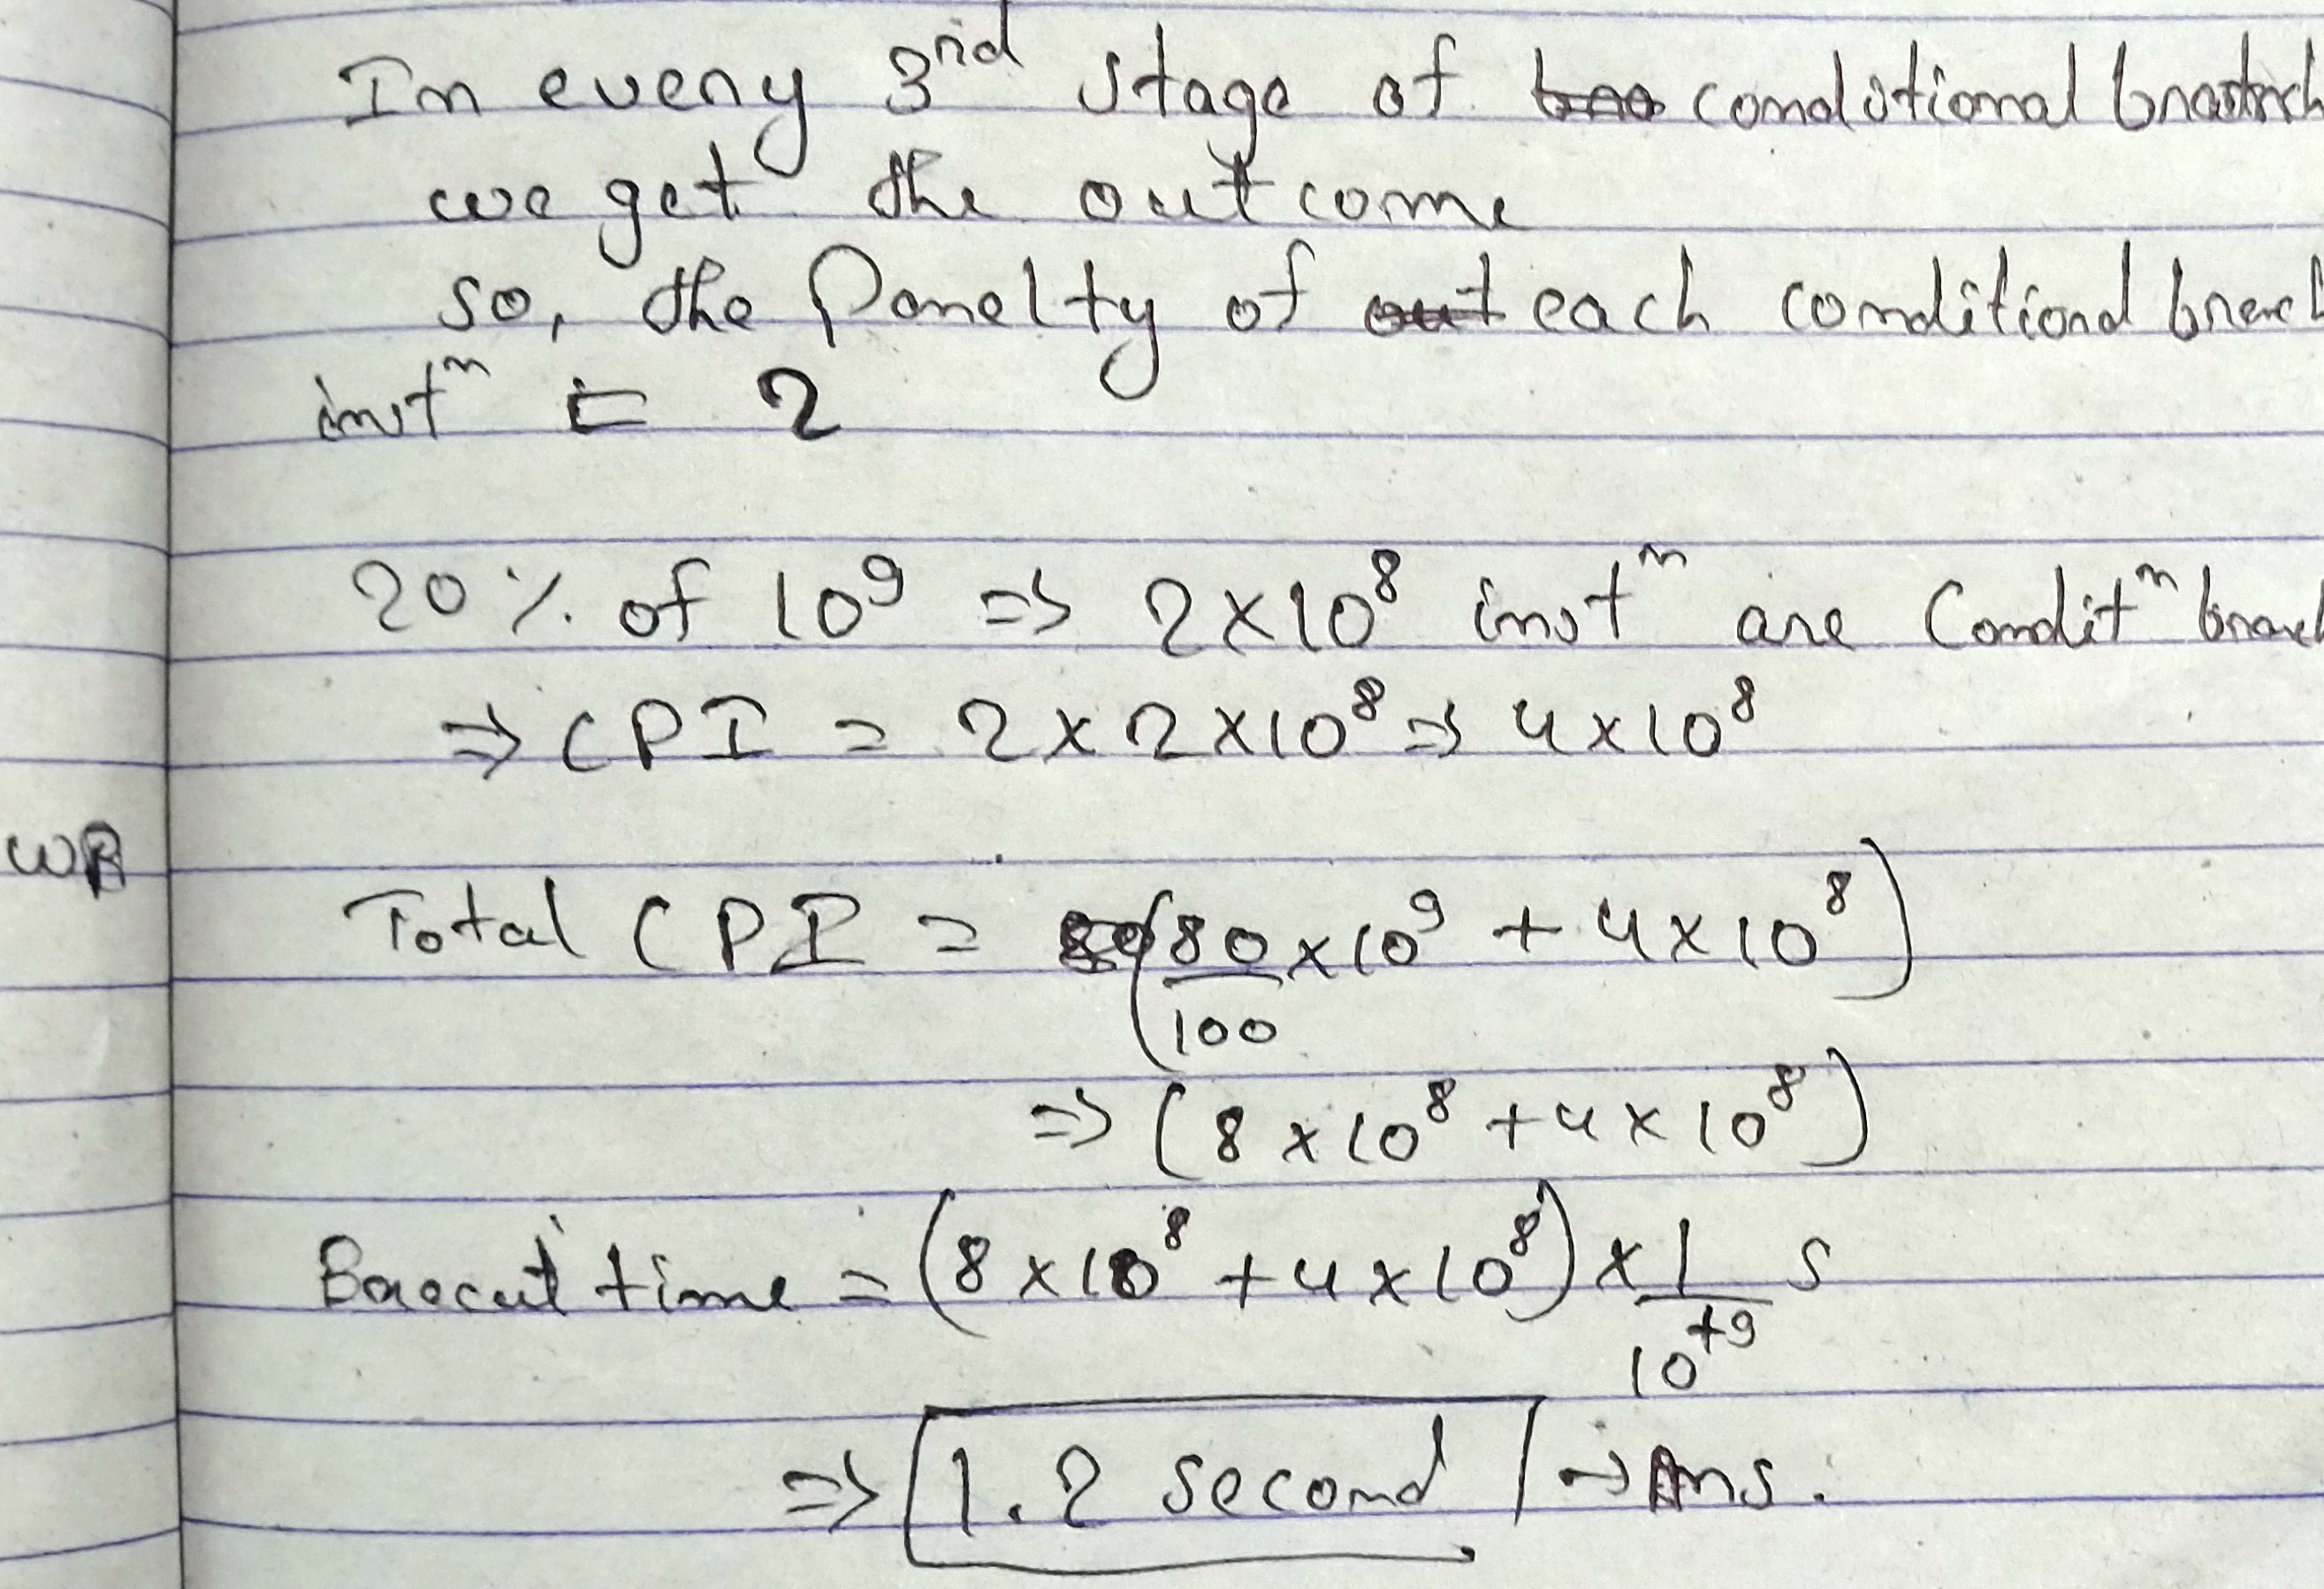 In every 3rd stage of conditional branch
we get the outcome
so, the Penelty of each conditional branch
instn = 2
20 % of 10⁹ => 2×10⁸ instn are Conditn branch
=> CPI = 2 × 2×10⁸ => 4×10⁸
WB
Total CPI = (80/100 ×10⁹ + 4×10⁸)
=> (8×10⁸ + 4×10⁸)
Execut time = (8×10⁸ + 4×10⁸) × 1/10⁺⁹ s
=> 1.2 second → Ans.